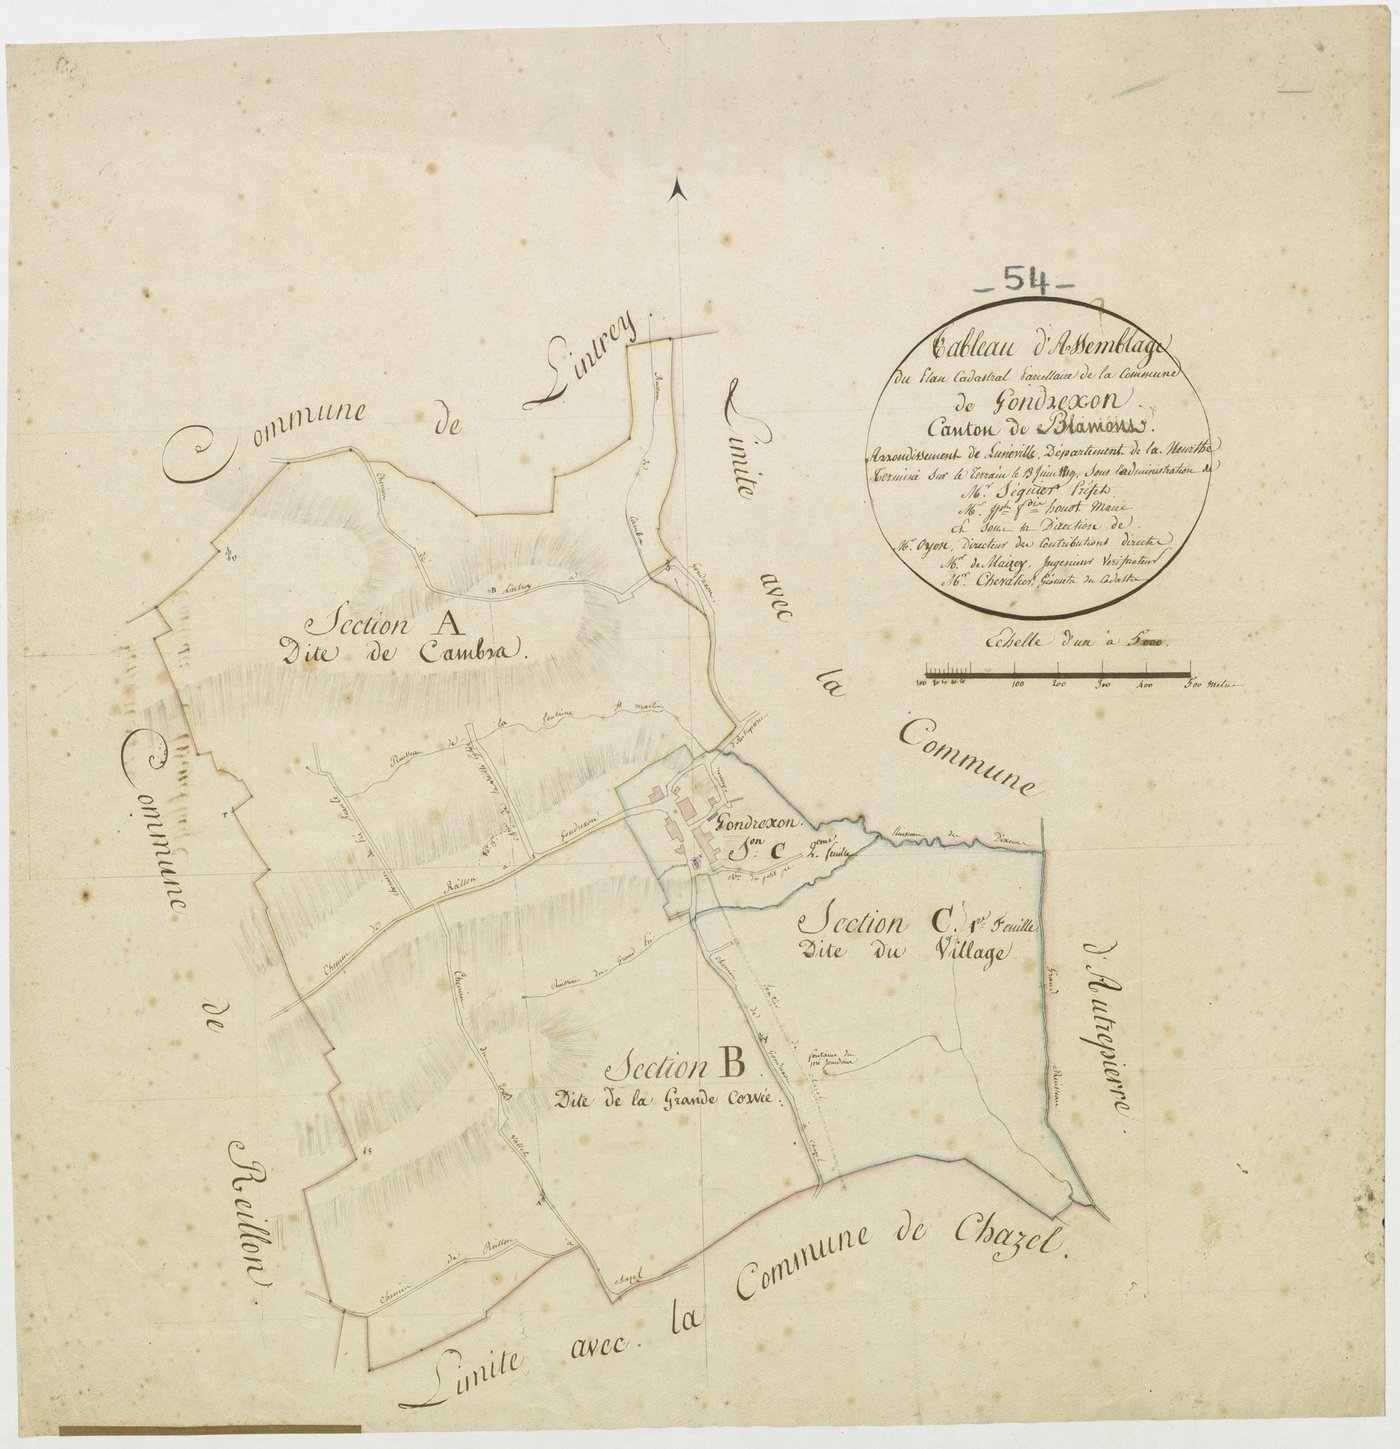 - 54 -
Tableau d'Assemblage
du Plan Cadastral Parcellaire de la Commune
de Gondrexon.
Canton de Blamont.
Arrondissement de Luneville, Département de la Meurthe
Terminé sur le Terrain le 13 Juin 1819. Sous l'administration de
Mr. Séguier Préfet
houot Maire
et sous la Direction de
Mr. Oyon, Directeur des Contributions directes
Mr. de Maizey, Ingenieur Verificateur
Mr. Chevalier, Géometre du Cadastre
Echelle d'un à 5000.
100 200 300 400 500 Metres
Commune de Lintrey.
Limite avec la Commune d'Autrepierre.
Section A
Dite de Cambra.
Chemin de Lintrey à Gondrexon
Ruisseau de Cambra
Ruisseau de la fontaine st martin
d'Autrepierre
Gondrexon.
Son C 2eme feuille
Ruisseau de
Chemin de Reillon à Gondrexon
Section C. 1ere Feuille
Dite du Village
Grand Ruisseau
Ruisseau du Grand Pré
Chemin de Gondrexon à Chazel
Sentier de Chazel
fontaine du
pré Jourdain
Section B
Dite de la Grande Corvée.
Chemin de Reillon à Chazel
Commune de Reillon.
Limite avec la Commune de Chazel.